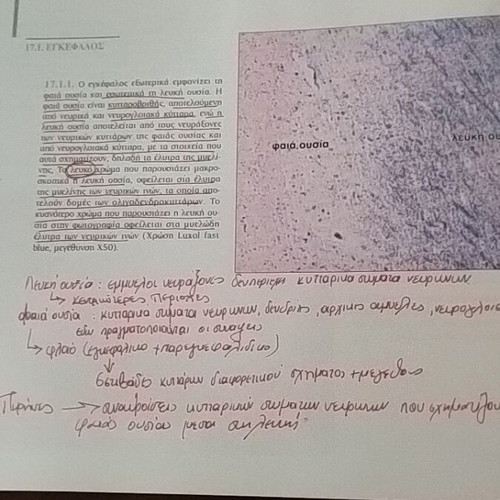 17.1. ΕΓΚΕΦΑΛΟΣ
17.1.1. Ο εγκέφαλος εξωτερικά εμφανίζει τη
φαιά ουσία και εσωτερικά τη λευκή ουσία. Η
φαιά ουσία είναι κυτταροβριθής, αποτελούμενη
από νευρικά και νευρογλοιακά κύτταρα, ενώ η
λευκή ουσία αποτελείται από τους νευράξονες
των νευρικών κυττάρων της φαιάς ουσίας και
από νευρογλοιακά κύτταρα, με τα στοιχεία που
αυτά σχηματίζουν, δηλαδή τα έλυτρα της μυελί-
νης. Το λευκό χρώμα που παρουσιάζει μακρο-
σκοπικά η λευκή ουσία, οφείλεται στα έλυτρα
της μυελίνης των νευρικών ινών, τα οποία απο-
τελούν δομές των ολιγοδενδροκυττάρων. Το
κυανότερο χρώμα που παρουσιάζει η λευκή ου-
σία στην φωτογραφία οφείλεται στα μυελώδη
έλυτρα των νευρικών ινών (Χρώση Luxol fast
blue, μεγέθυνση X50).
φαιά ουσία
λευκή ου
Λευκή ουσία: εμμύελοι νευράξονες δευτερευόντως κυτταρικά σώματα νευρώνων
↳ κεντρικότερες περιοχές
φαιά ουσία: κυτταρικά σώματα νευρώνων, δενδρίτες, αρχικά αμύελες, νευρογλοιακά
εδώ πραγματοποιούνται οι συνάψεις
↳ φλοιό (εγκεφαλικό + παρεγκεφαλιδικό)
↓
Στιβάδες κυττάρων διαφορετικού σχήματος + μεγέθους
Πυρήνες → συναθροίσεις κυτταρικών σωμάτων νευρώνων που σχηματίζου
φαιάς ουσίας μέσα στη λευκή